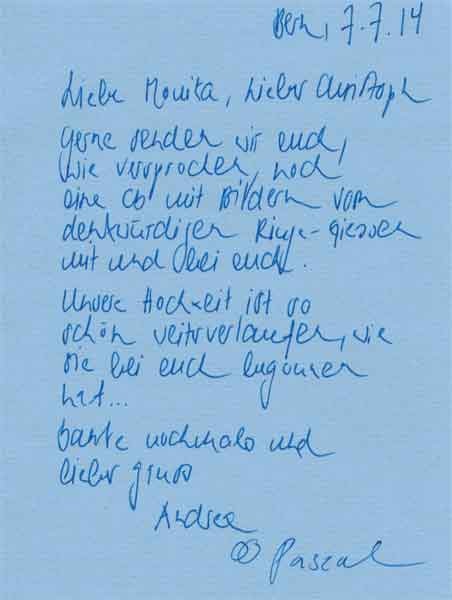 Bern, 7.7.14
Liebe Monika, Lieber Christoph
Gerne senden wir euch,
wie versprochen, noch
eine CD mit Bildern vom
denkwürdigen Ringe-giessen
mit und bei euch.
Unsere Hochzeit ist so
schön weiterverlaufen, wie
sie bei euch begonnen
hat...
Danke nochmals und
lieber gruss
Andrea
Pascal